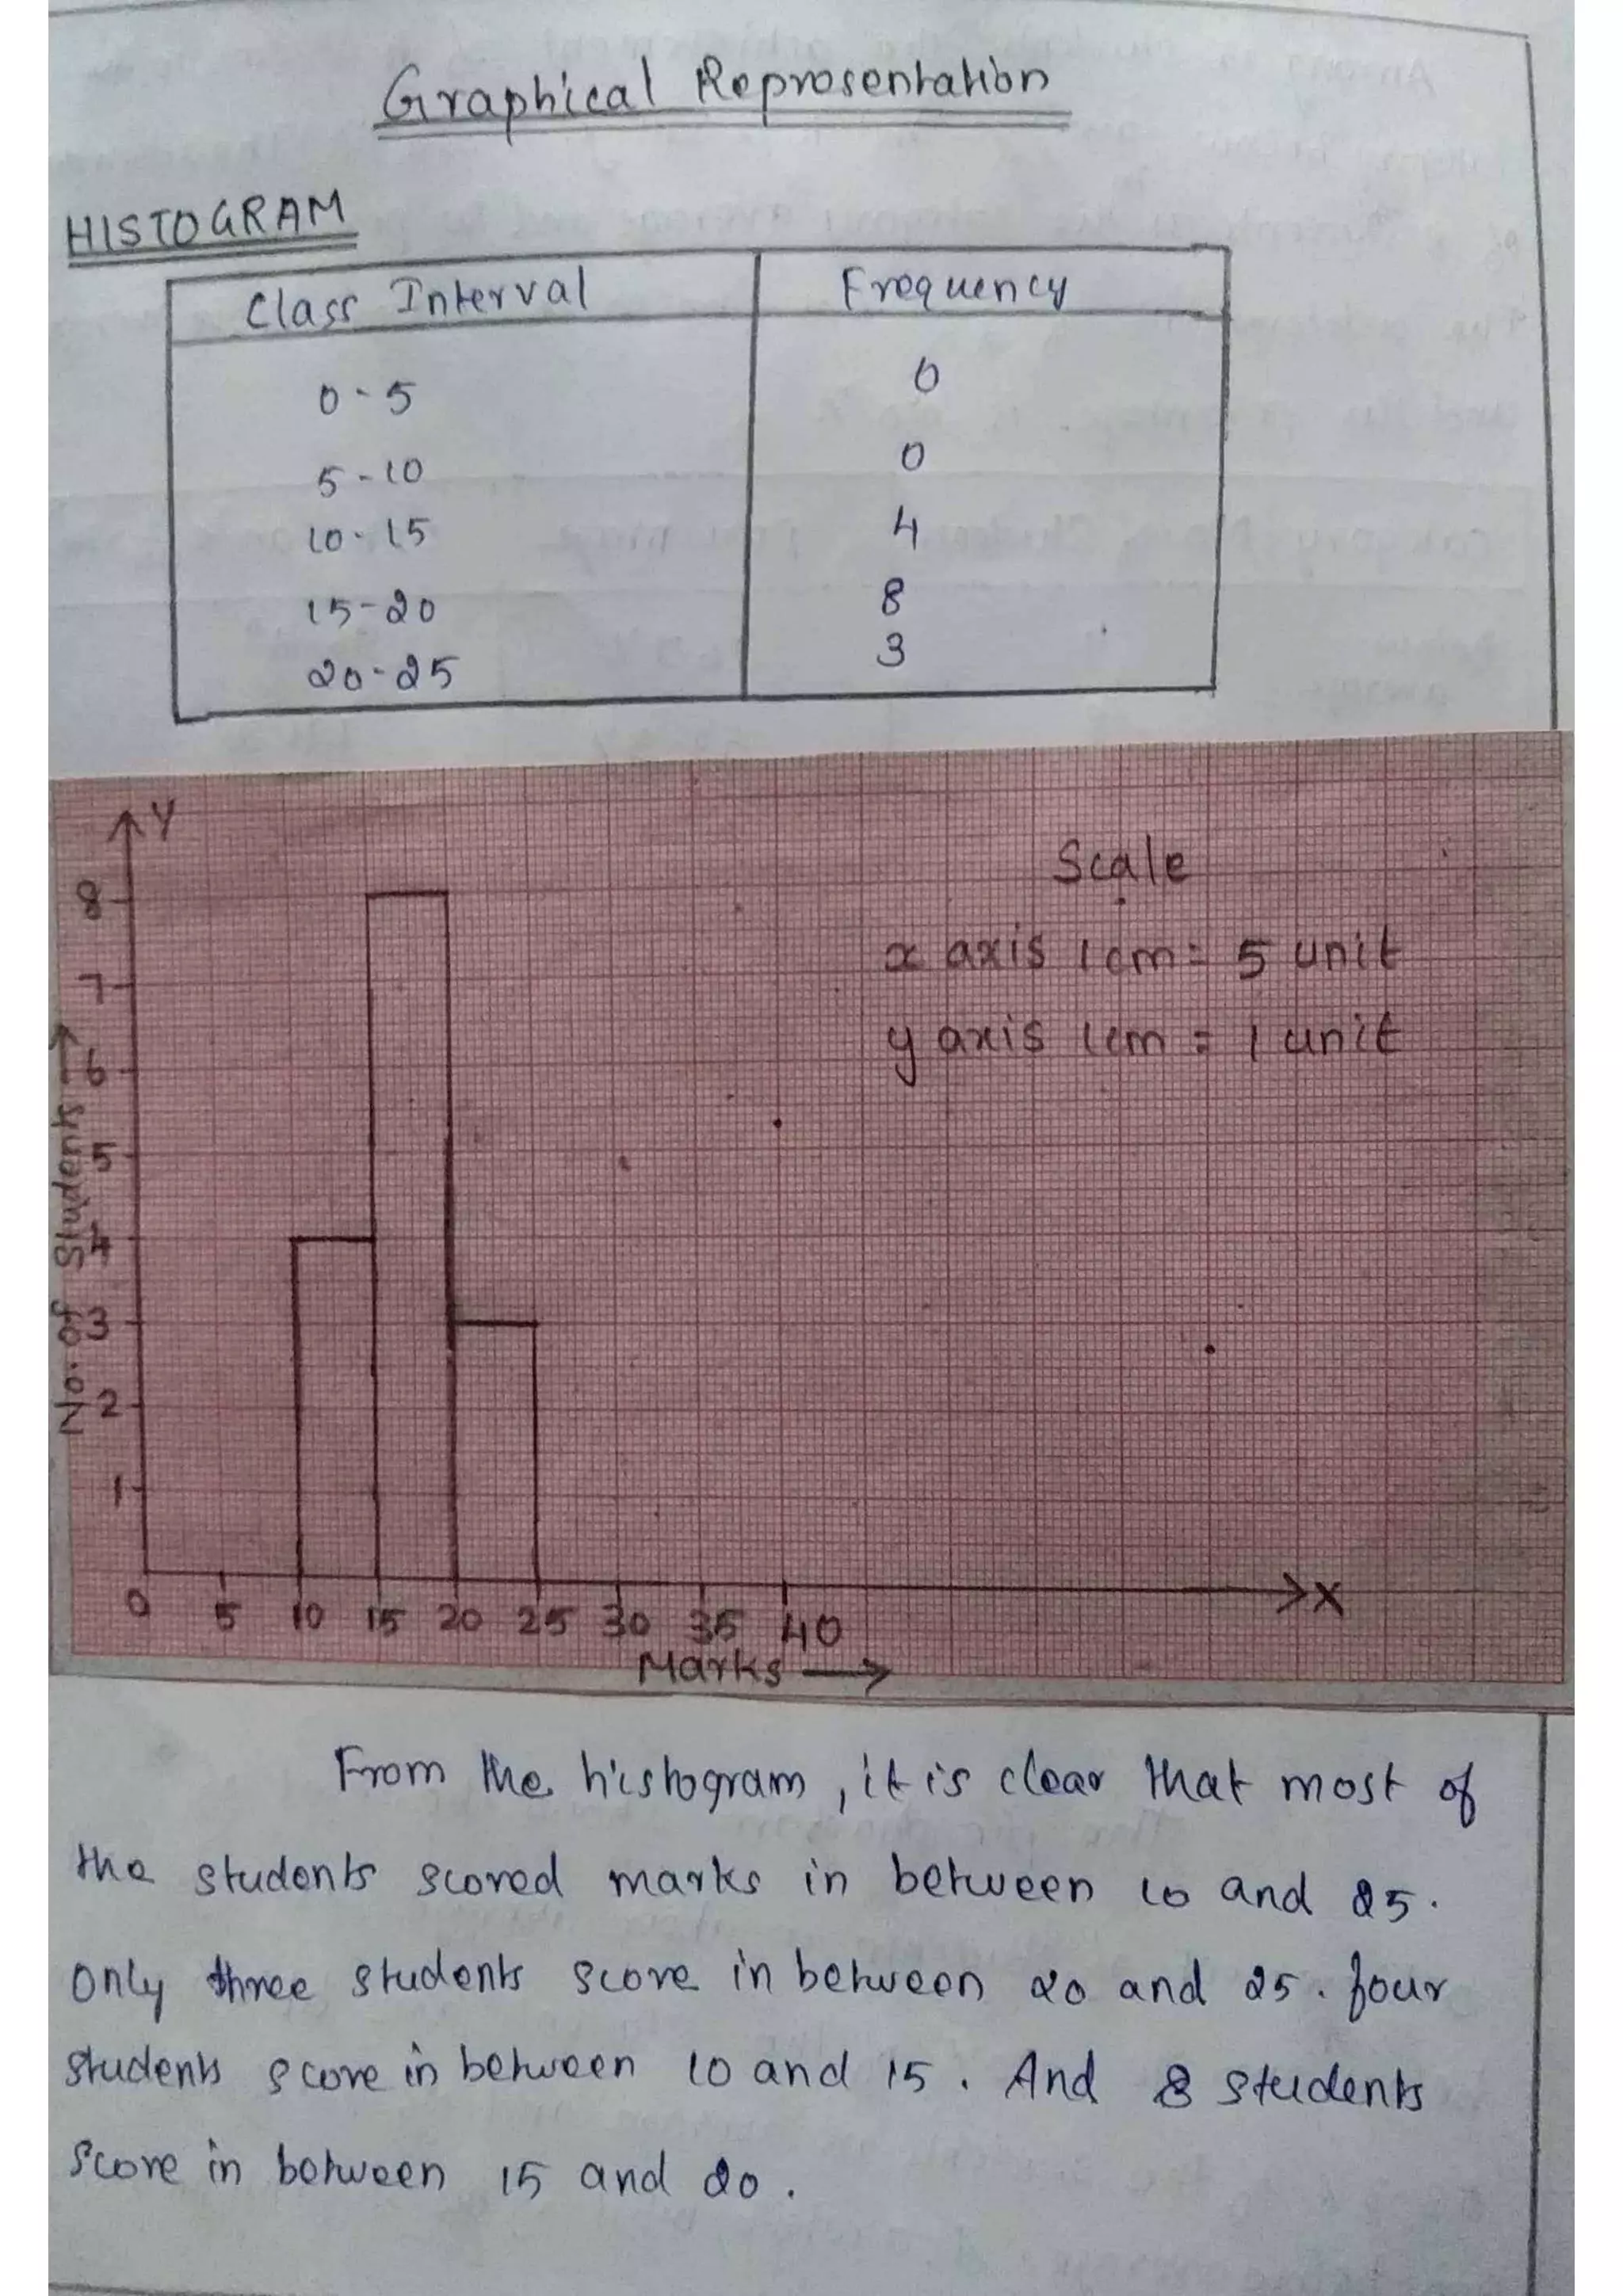 Graphical Representation
HISTOGRAM
Class Interval Frequency
0-5 0
5-10 0
10-15 4
15-20 8
20-25 3
Y
8
7
6
5
4
3
2
1
No. of Students →
Scale
x axis 1cm = 5 unit
y axis 1cm = 1 unit
0 5 10 15 20 25 30 35 40
X
Marks →
From the histogram, it is clear that most of
the students scored marks in between 10 and 25.
Only three students score in between 20 and 25. four
students score in between 10 and 15. And 8 students
score in between 15 and 20.